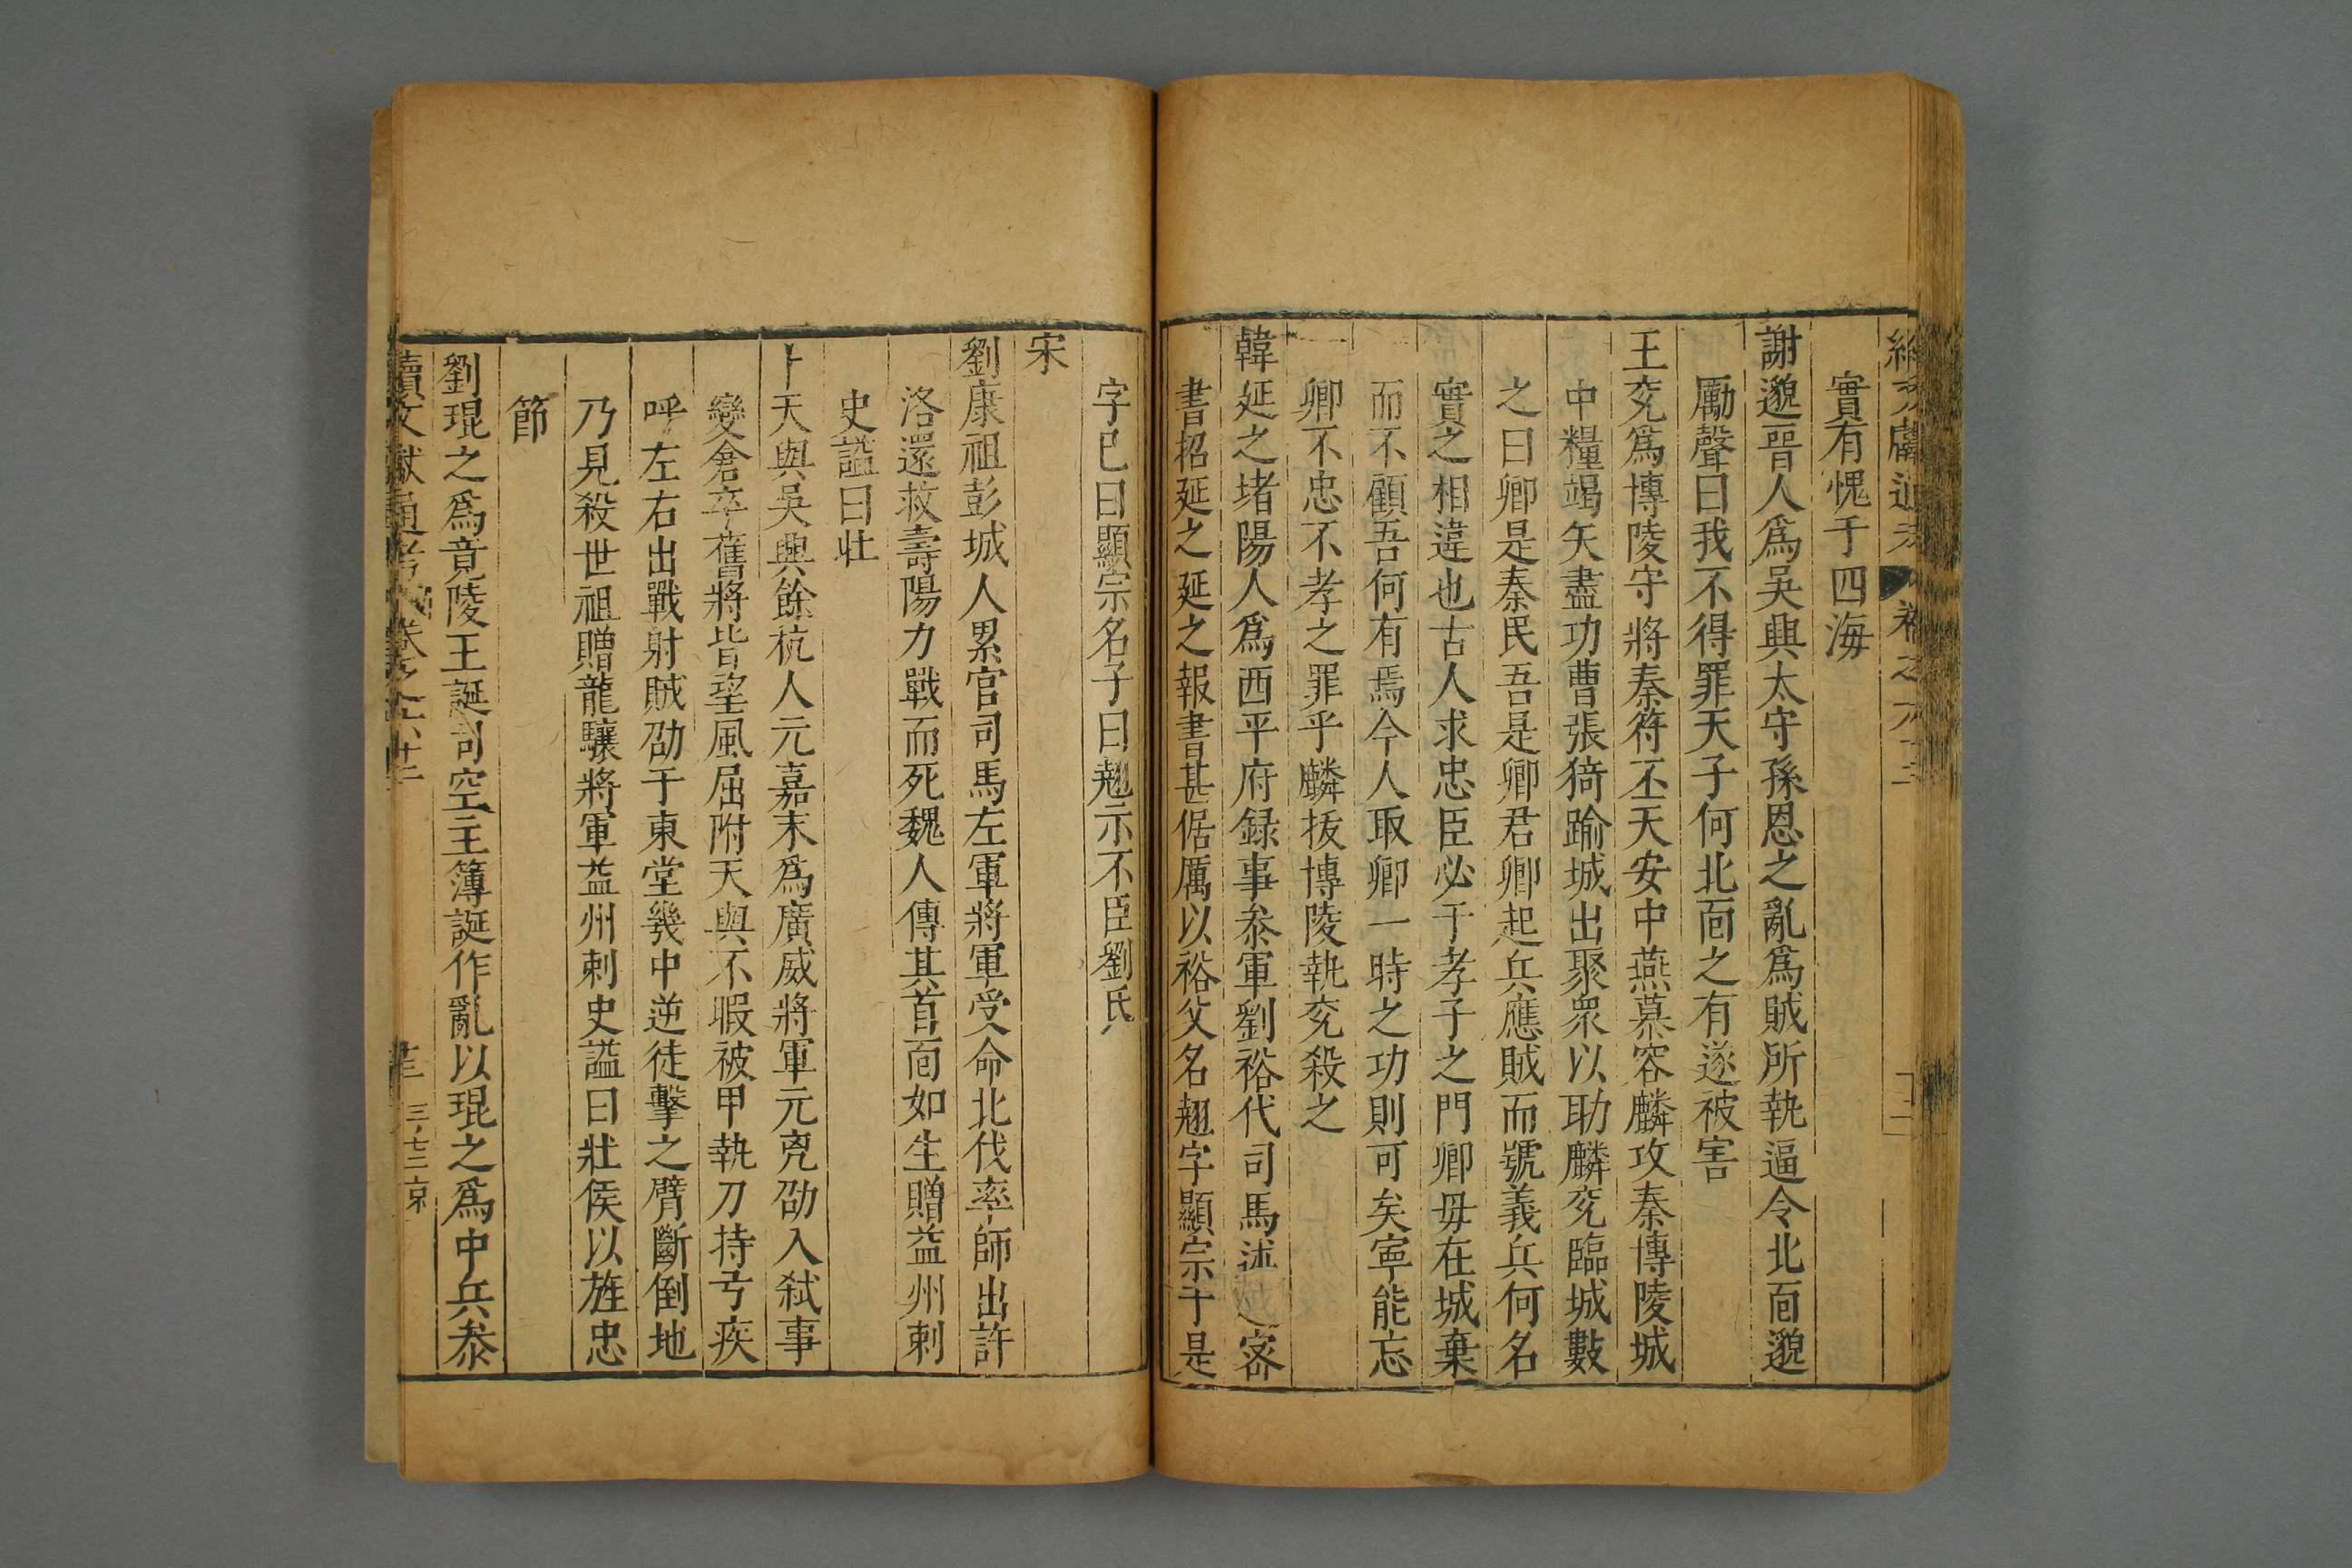 實有愧于四海
謝邈晉人爲吳興太守孫恩之亂爲賊所執逼令北面邈
厲聲曰我不得罪天子何北面之有遂被害
王兖爲博陵守將秦符丕天安中燕慕容麟攻秦博陵城
中糧竭矢盡功曹張猗踰城出聚衆以助麟兖臨城數
之曰卿是秦民吾是卿君卿起兵應賊而號義兵何名
實之相違也古人求忠臣必于孝子之門卿毋在城棄
而不顧吾何有焉今人取卿一時之功則可矣寧能忘
卿不忠不孝之罪乎麟拔博陵執兖殺之
韓延之堵陽人爲西平府録事叅軍劉裕代司馬密
書招延之延之報書甚倨厲以裕父名翹字顯宗于是
字已曰顯宗名子曰翹示不臣劉氏
宋
劉康祖彭城人累官司馬左軍將軍受命北伐率師出許
洛還救壽陽力戰而死魏人傳其首面如生贈益州刺
史謚曰壯
卜天與吳興餘杭人元嘉末爲廣威將軍元兇劭入弑事
變倉卒舊將皆望風屈附天與不暇被甲執刀持弓疾
呼左右出戰射賊劭于東堂幾中逆徒擊之臂斷倒地
乃見殺世祖贈龍驤將軍益州刺史謚曰壯侯以旌忠
節
劉琨之爲竟陵王誕司空主簿誕作亂以琨之爲中兵叅
續文獻通考